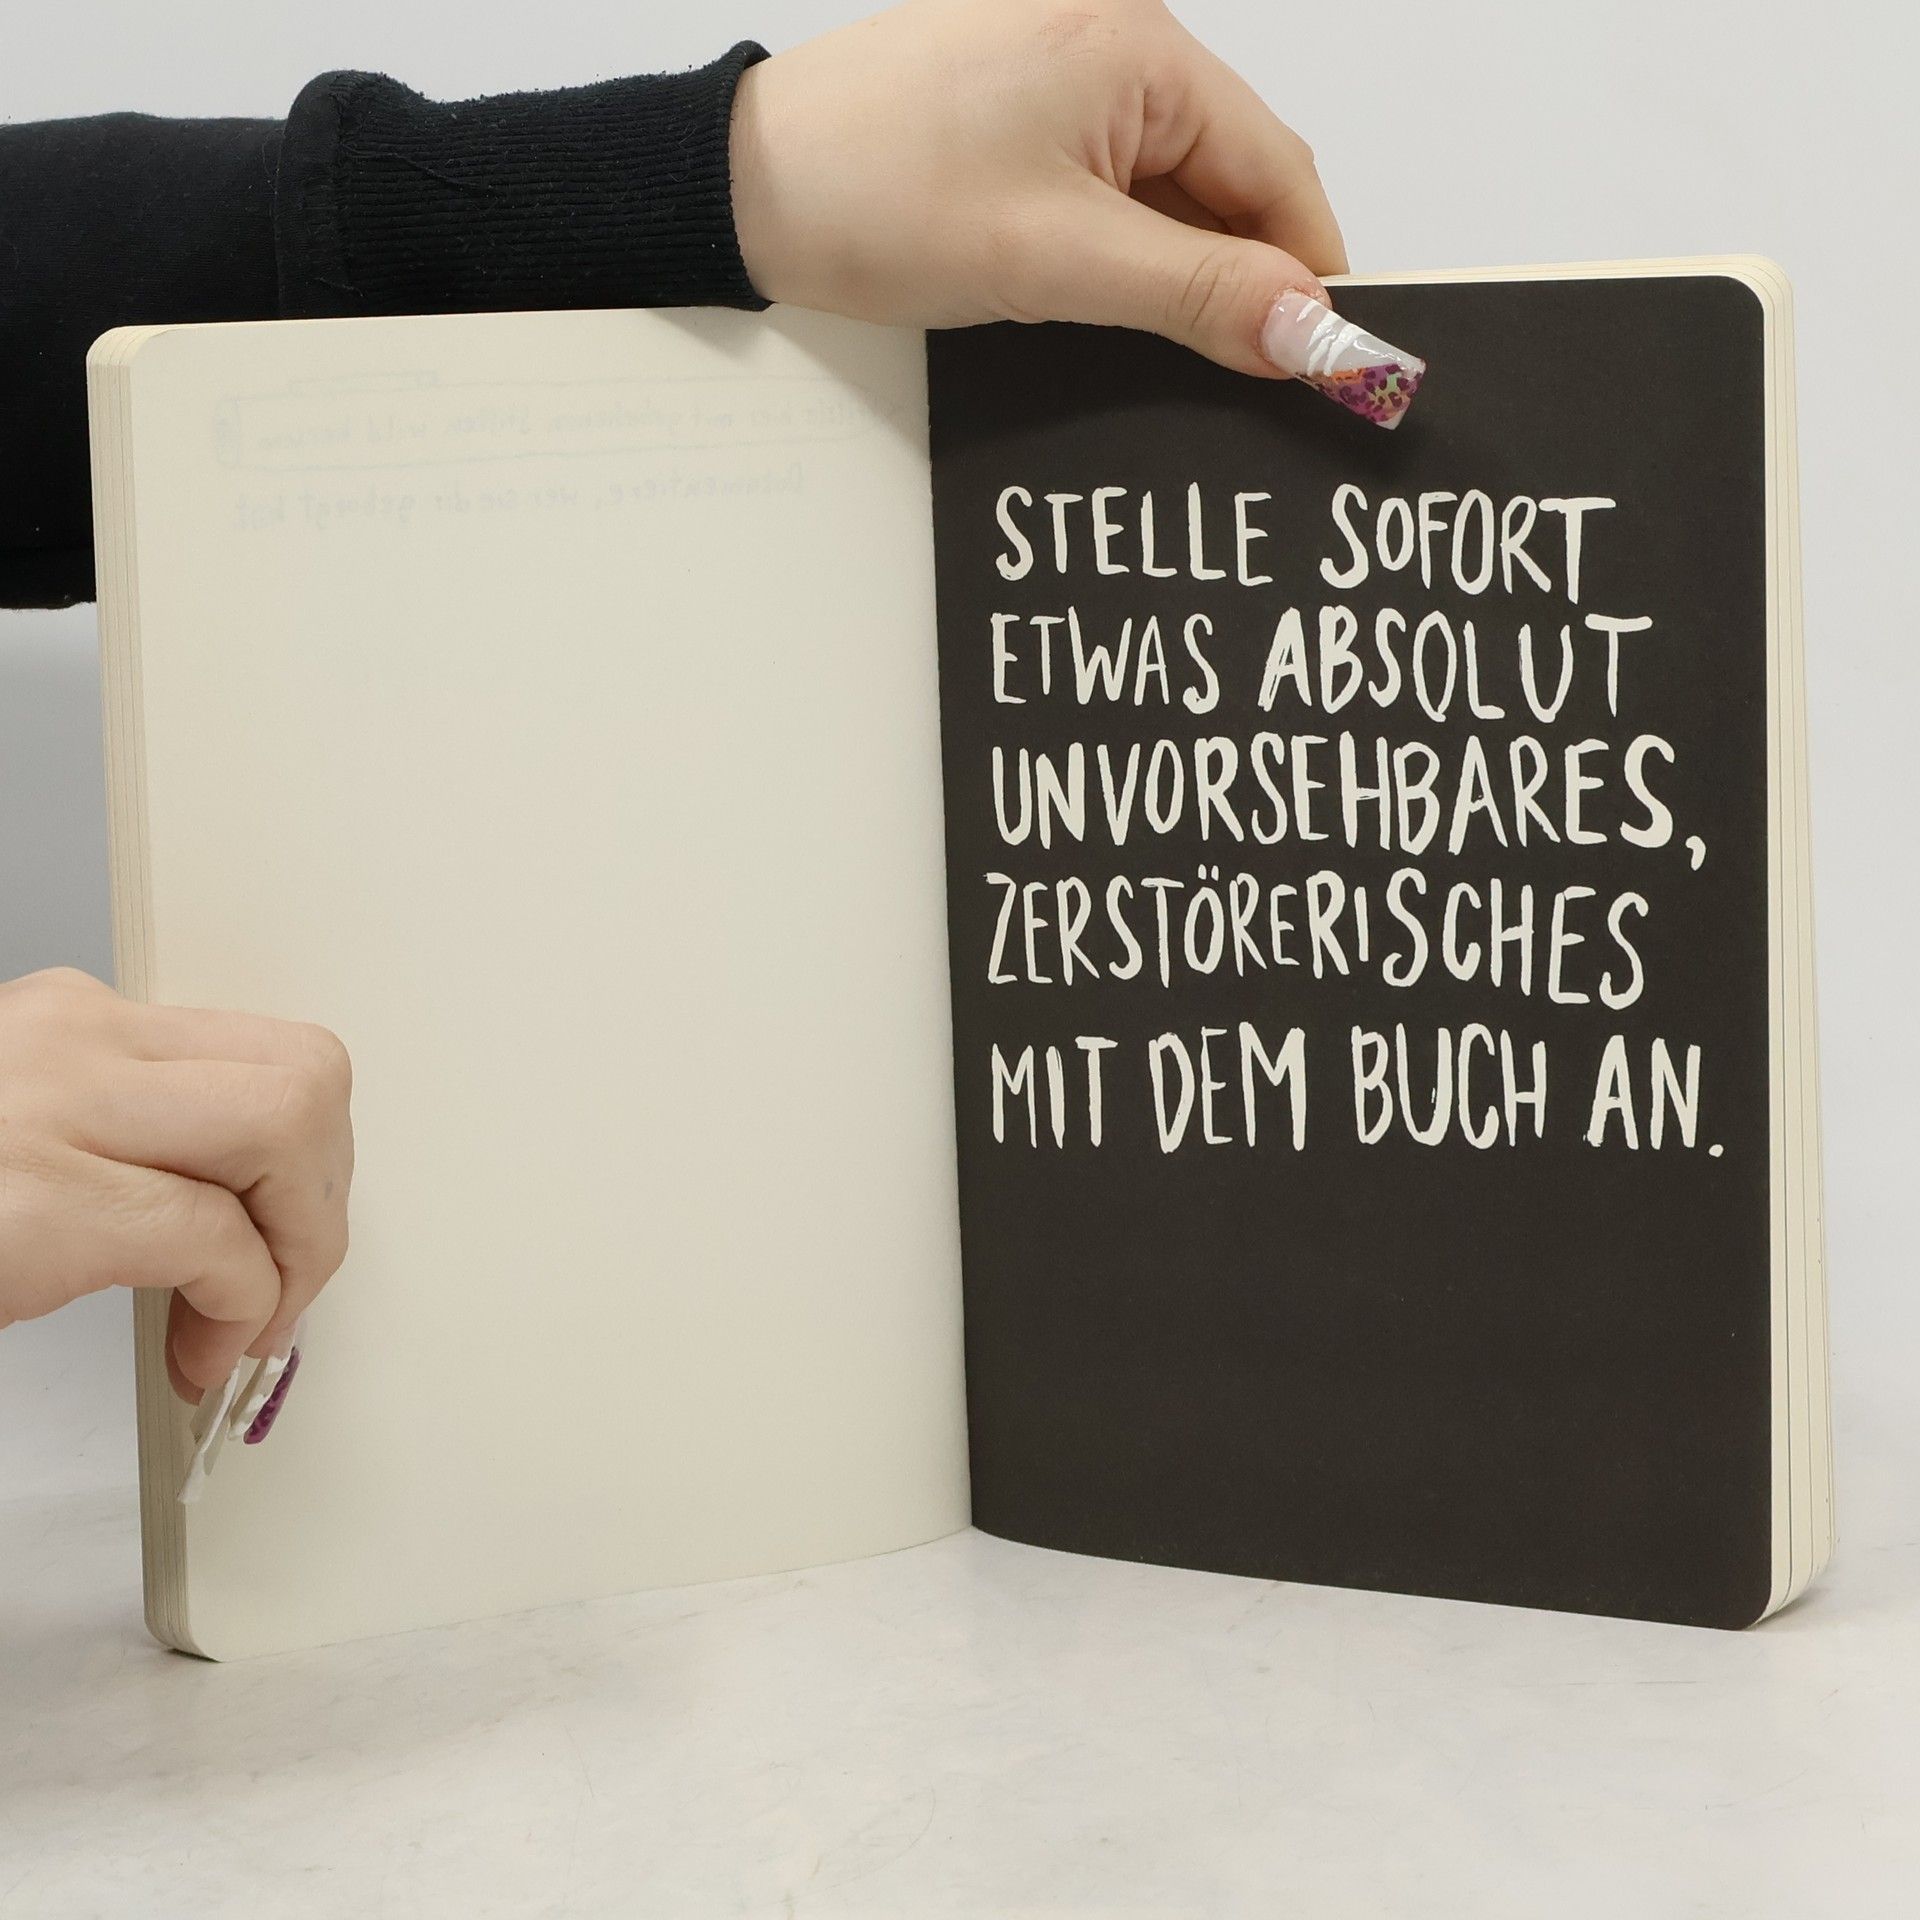 STELLE SOFORT
ETWAS ABSOLUT
UNVORSEHBARES,
ZERSTÖRERISCHES
MIT DEM BUCH AN.